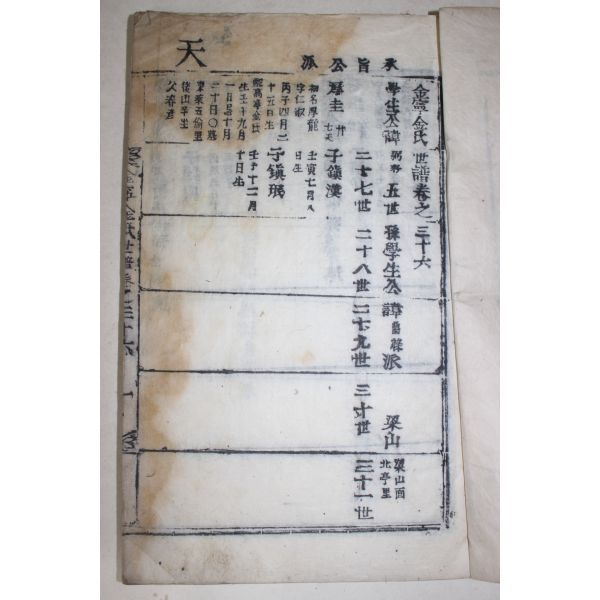 天
派公旨承
金寧金氏世譜卷之三十六
學生公諱 五世孫學生公諱 派 梁山 梁山面北亭里
二十七世 二十八世 二十九世 三十世 三十一世
圭 子鎭漢
初名厚龍 壬寅七月八
字仁淑 日生
丙子四月二
十五日生 子鎭珉
金氏 壬子十二月
生壬午九月 十日生
一日忌十月
二十日〇墓
東萊五倫里
後山辛坐
父春彦
金寧金氏世譜卷之三十六 一